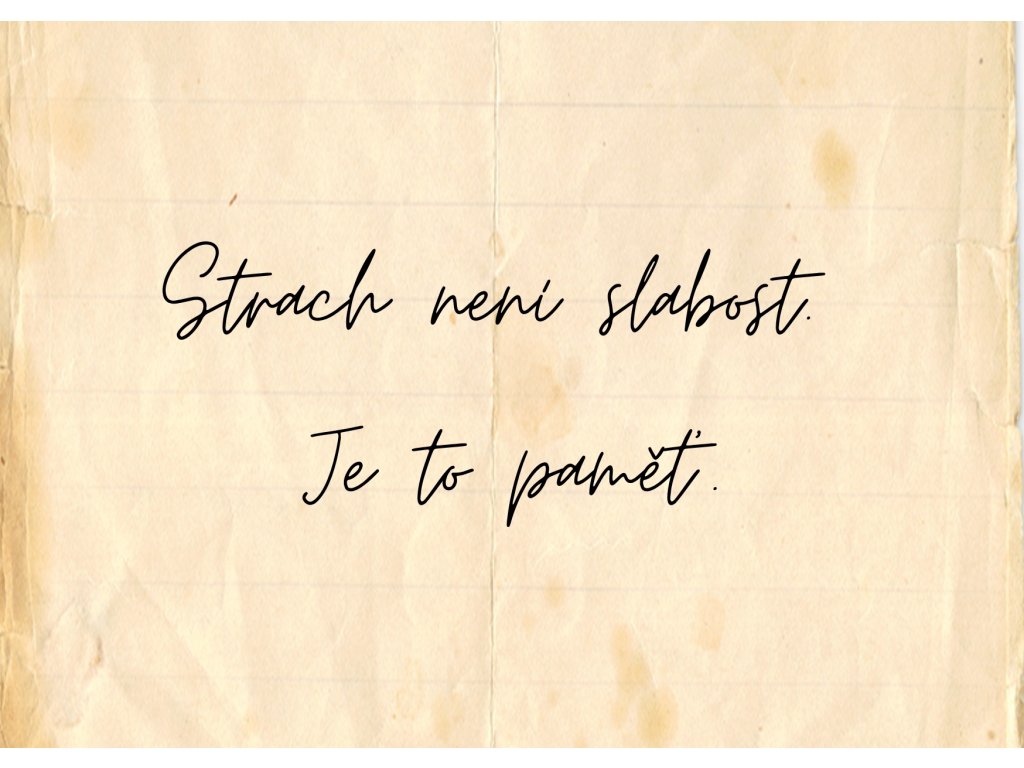 Strach není slabost.
Je to paměť.